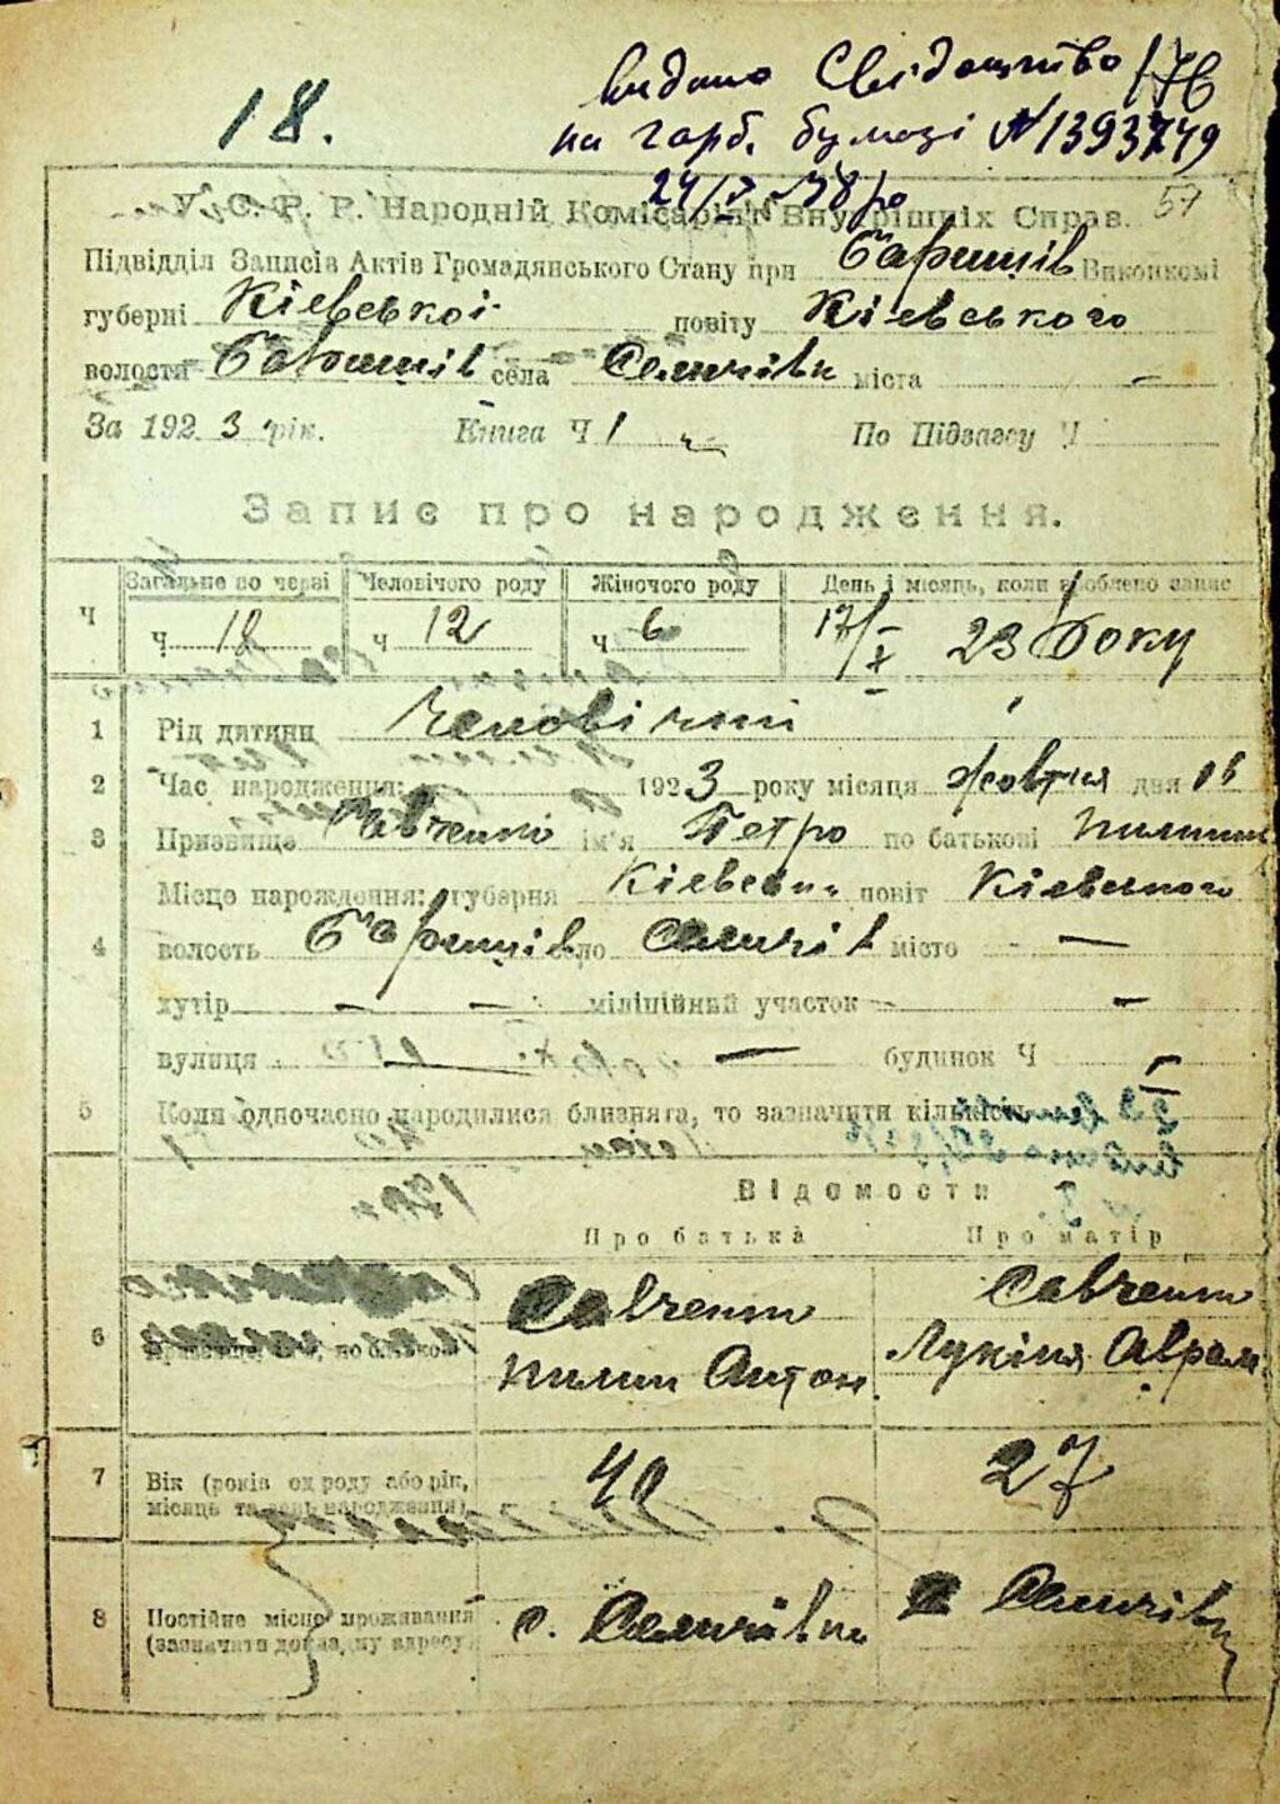 видано Свідоцтво 176
18.
на герб. бумазі № 1393749
24/V 48 ро
57
У. С. Р. Р. Народній Комісаріят Внутрішніх Справ.
Підвідділ Записів Актів Громадянського Стану при Баришів Виконкомі
губерні Кіевської повіту Кіевського
волости Баришів села Селичівки міста —
За 1923 рік. Книга Ч 1 По Підзагсу Ч
Запис про народження.
Загальне по черзі Человічого роду Жіночого роду День і місяць, коли зроблено запис
Ч ч 18 ч 12 ч 6 17/X 23 Року
1 Рід дитини Человічий
2 Час народження: 1923 року місяця Жовтня дня 16
3 Призвище Савченко ім'я Петро по батькові Пилипов
Місце нарождення: губерня Кіевськи повіт Кіевського
4 волость Баришів село Селичів місто —
хутір — — міліційний участок —
вулиця — — будинок Ч —
5 Коли одночасно народилися близнята, то зазначити кількість
Відомости
Про батька Про матір
Савченко Савченко
6 Призвище, ім'я, по батькові Пилип Антон. Лукіня Аврам
7 Вік (років од роду або рік, місяць та день народження) 40 27
8 Постійне місце проживання с. Селичівки с Селичівц
(зазначити докладну адресу)